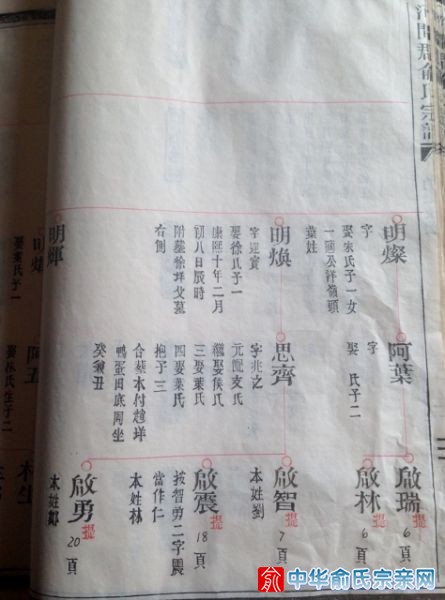 河間郡俞氏宗譜
明燦
字
娶宋氏子一女
一適公祥嶺頭
葉姓
明煥
字迎賓
娶徐氏子一
康熙十年二月
初八日辰時
附墓徐垟父墓
右側
明輝
阿葉
字
娶 氏子二
思齊
字兆之
元配支氏
繼娶侯氏
三娶葉氏
四娶葉氏
抱子三
合葬木付趙垟
鴨蛋田底周坐
癸兼丑
啟瑞
提
6頁
啟林
提
6頁
啟智
提
7頁
本姓劉
啟震
提
18頁
按智勇二字震
當作仁
本姓林
啟勇
提
20頁
本姓鄭
娶葉氏子一
阿五
俞
中华俞氏宗亲网